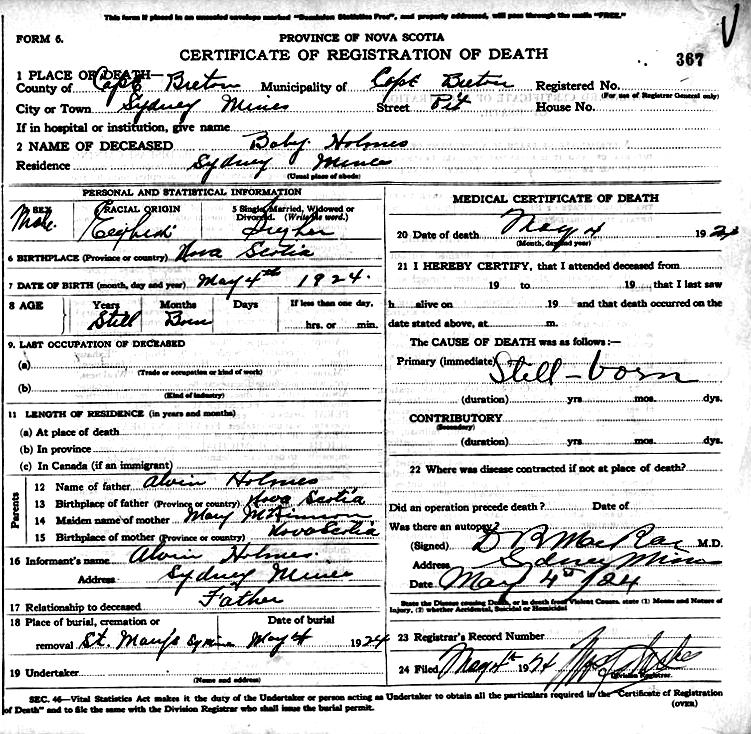 This form if placed in an unsealed envelope marked "Dominion Statistics Free", and properly addressed, will pass through the mails "FREE."
FORM 6.
PROVINCE OF NOVA SCOTIA
CERTIFICATE OF REGISTRATION OF DEATH
367
1 PLACE OF DEATH—
County of Cape Breton Municipality of Cape Breton Registered No.
(For use of Registrar General only)
City or Town Sydney Mines Street Pit House No.
If in hospital or institution, give name
2 NAME OF DECEASED Baby Holmes
Residence Sydney Mines
(Usual place of abode)
PERSONAL AND STATISTICAL INFORMATION
SEX Male RACIAL ORIGIN English 5 Single, Married, Widowed or Divorced. (Write the word.) Single
6 BIRTHPLACE (Province or country) Nova Scotia
7 DATE OF BIRTH (month, day and year) May 4th 1924.
8 AGE Years Months Days If less than one day,
Still Born hrs. or min.
9. LAST OCCUPATION OF DECEASED
(a)
(Trade or occupation or kind of work)
(b)
(Kind of industry)
11 LENGTH OF RESIDENCE (in years and months)
(a) At place of death
(b) In province
(c) In Canada (if an immigrant)
Parents
12 Name of father Alvin Holmes
13 Birthplace of father (Province or country) Nova Scotia
14 Maiden name of mother Mary McKinnon
15 Birthplace of mother (Province or country) Nova Scotia
16 Informant's name Alvin Holmes.
Address Sydney Mines
17 Relationship to deceased Father
18 Place of burial, cremation or Date of burial
removal St. Mary's Sy mines May 4 1924
19 Undertaker
(Name and address)
MEDICAL CERTIFICATE OF DEATH
20 Date of death May 4 1924
(Month, day and year)
21 I HEREBY CERTIFY, that I attended deceased from
19 to 19, that I last saw
h alive on 19 and that death occurred on the
date stated above, at m.
The CAUSE OF DEATH was as follows:—
Primary (immediate) Still-born
(duration) yrs. mos. dys.
CONTRIBUTORY
(Secondary)
(duration) yrs. mos. dys.
22 Where was disease contracted if not at place of death?
Did an operation precede death? Date of
Was there an autopsy?
(Signed) D R MacRae M.D.
Address Sydney Mines
Date May 4th /24
State the Disease causing Death, or in death from Violent Causes, state (1) Means and Nature of Injury, (2) whether Accidental, Suicidal or Homicidal
23 Registrar's Record Number
24 Filed May 4th 1924
Division Registrar.
SEC. 46—Vital Statistics Act makes it the duty of the Undertaker or person acting as Undertaker to obtain all the particulars required in the "Certificate of Registration
of Death" and to file the same with the Division Registrar who shall issue the burial permit.
(OVER)